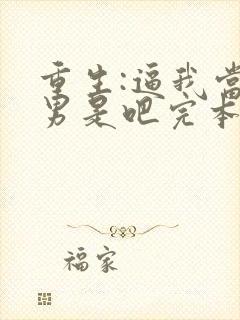 重生:逼我当
男是吧完本
福家